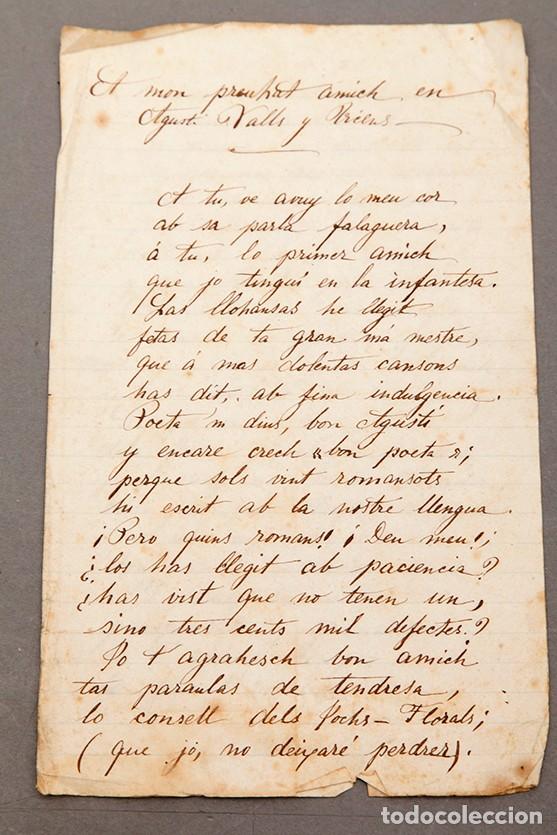 A mon preuhat amich en
Agustí Valls y Vicens
A tu, ve avuy lo meu cor
ab sa parla falaguera,
á tu, lo primer amich
que jo tinguí en la infantesa.
Las llohansas he llegit
fetas de ta gran má mestre,
que á mas dolentas cansons
has dit, ab fina indulgencia.
Poeta 'm dius, bon Agustí
y encare crech "bon poeta";
perque sols vint romansots
hi escrit ab la nostre llengua.
¡Pero quins romans! ¡Deu meu!;
¿los has llegit ab paciencia?
¿has vist que no tenen un,
sino tres cents mil defectes?
Jo t' agrahesch bon amich
tas paraulas de tendresa,
lo consell dels Jochs-Florals;
(que jo, no deixaré perdrer).
todocoleccion